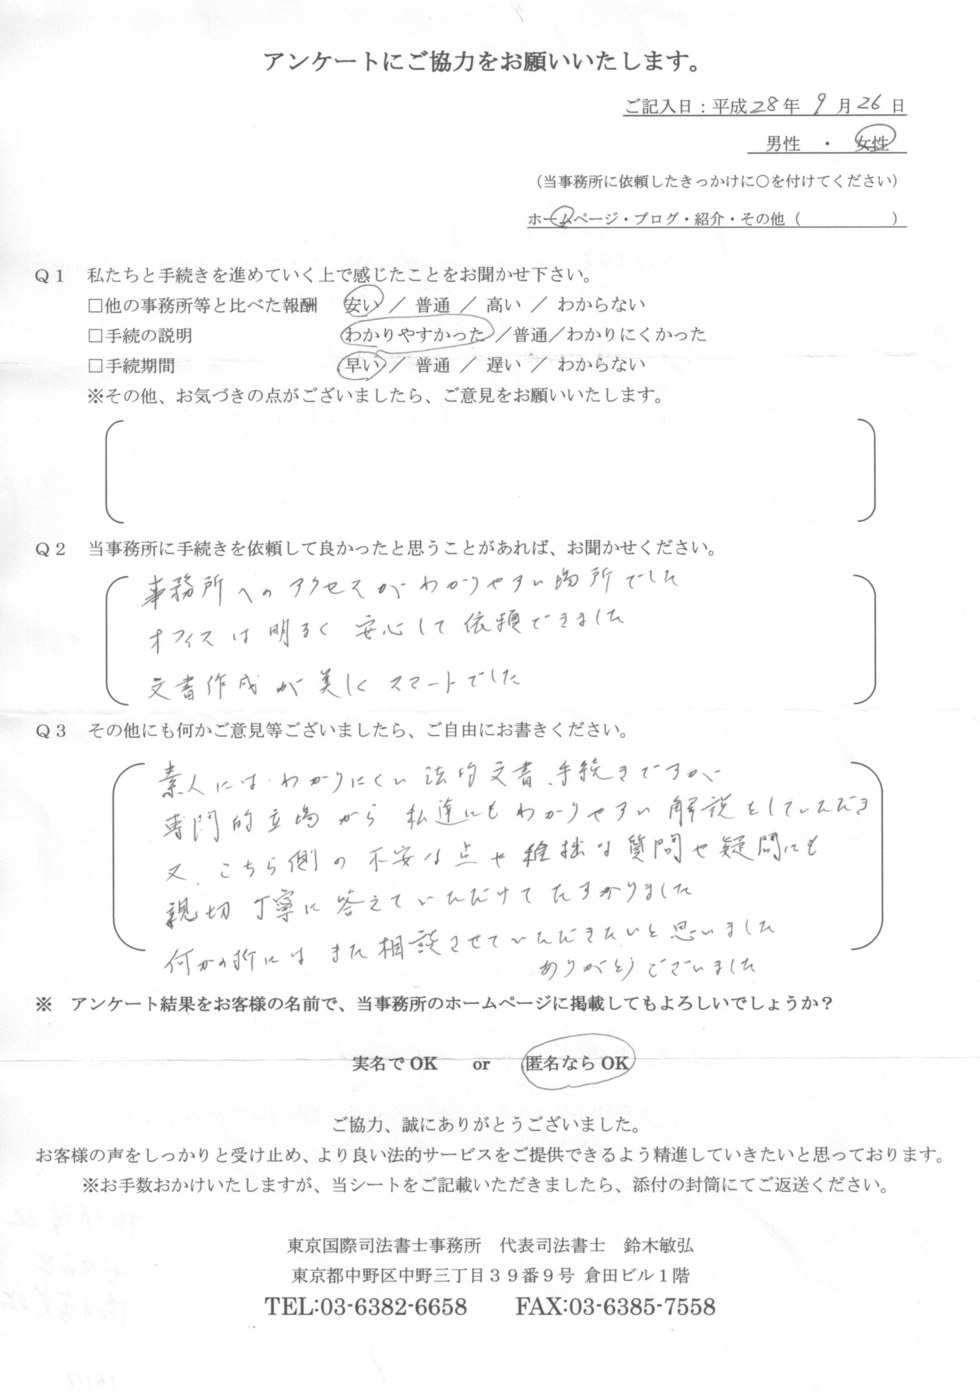 アンケートにご協力をお願いいたします。
ご記入日：平成28年 9月26日
男性 ・ 女性
（当事務所に依頼したきっかけに○を付けてください）
ホームページ・ブログ・紹介・その他（　　　　　）
Ｑ１　私たちと手続きを進めていく上で感じたことをお聞かせ下さい。
□他の事務所等と比べた報酬　安い ／ 普通 ／ 高い ／ わからない
□手続の説明　わかりやすかった ／普通／わかりにくかった
□手続期間　早い ／ 普通 ／ 遅い ／ わからない
※その他、お気づきの点がございましたら、ご意見をお願いいたします。
Ｑ２　当事務所に手続きを依頼して良かったと思うことがあれば、お聞かせください。
事務所へのアクセスがわかりやすい場所でした
オフィスは明るく安心して依頼できました
文書作成が美しくスマートでした
Ｑ３　その他にも何かご意見等ございましたら、ご自由にお書きください。
素人にはわかりにくい法的文書、手続きですが、
専門的立場から私達にもわかりやすい解説をしていただき
又、こちら側の不安な点や稚拙な質問や疑問にも
親切丁寧に答えていただけてたすかりました
何かの折にはまた相談させていただきたいと思いました
ありがとうございました
※　アンケート結果をお客様の名前で、当事務所のホームページに掲載してもよろしいでしょうか？
実名でOK　or　匿名ならOK
ご協力、誠にありがとうございました。
お客様の声をしっかりと受け止め、より良い法的サービスをご提供できるよう精進していきたいと思っております。
※お手数おかけいたしますが、当シートをご記載いただきましたら、添付の封筒にてご返送ください。
東京国際司法書士事務所　代表司法書士　鈴木敏弘
東京都中野区中野三丁目３９番９号 倉田ビル１階
TEL:03-6382-6658　FAX:03-6385-7558